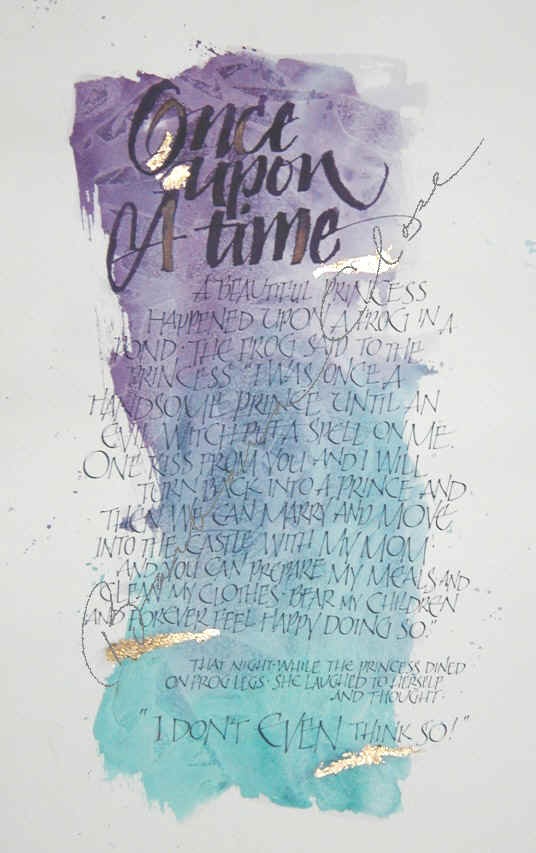 Once
upon
A time
A BEAUTIFUL PRINCESS
HAPPENED UPON A FROG IN A
POND · THE FROG SAID TO THE
PRINCESS "I WAS ONCE A
HANDSOME PRINCE UNTIL AN
EVIL WITCH PUT A SPELL ON ME.
ONE KISS FROM YOU AND I WILL
TURN BACK INTO A PRINCE AND
THEN WE CAN MARRY AND MOVE
INTO THE CASTLE WITH MY MOM
AND YOU CAN PREPARE MY MEALS AND
CLEAN MY CLOTHES · BEAR MY CHILDREN
AND FOREVER FEEL HAPPY DOING SO."
THAT NIGHT · WHILE THE PRINCESS DINED
ON FROG LEGS · SHE LAUGHED TO HERSELF
AND THOUGHT ·
"I DON'T EVEN THINK SO!"